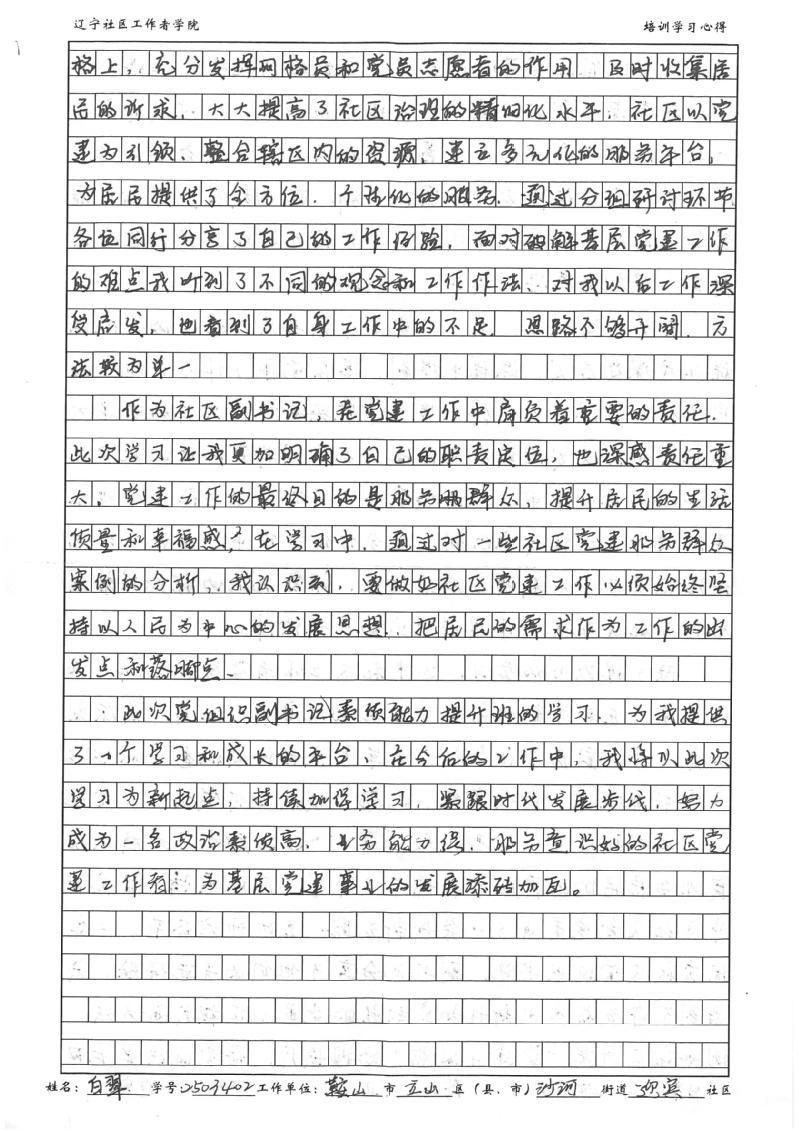 辽宁社区工作者学院 培训学习心得
格上，充分发挥网格员和党员志愿者的作用 及时收集居
民的诉求，大大提高了社区治理的精细化水平，社区以党
建为引领、整合辖区内的资源，建立多元化的服务平台，
为居民提供了全方位、个性化的服务。通过分组研讨环节
各位同行分享了自己的工作经验，面对破解基层党建工作
的难点我听到了不同的观念和工作作法、对我以后工作深
受启发，也看到了自身工作中的不足，思路不够开阔、方
法较为单一
作为社区副书记，在党建工作中肩负着重要的责任.
此次学习让我更加明确了自己的职责定位，也深感责任重
大。党建工作的最终目的是服务群众，提升居民的生活
质量和幸福感，在学习中，通过对一些社区党建服务群众
案例的分析，我认识到，要做好社区党建工作必须始终坚
持以人民为中心的发展思想，把居民的需求作为工作的出
发点和落脚点、
此次党组织副书记素质能力提升班的学习，为我提供
了一个学习和成长的平台，在今后的工作中，我将以此次
学习为新起点，持续加强学习，紧跟时代发展步伐，努力
成为一名政治素质高、业务能力强、服务意识好的社区党
建工作者，为基层党建事业的发展添砖加瓦。
姓名：白翠 学号：2503402 工作单位：鞍山 市 立山 区（县、市）沙河 街道 社区